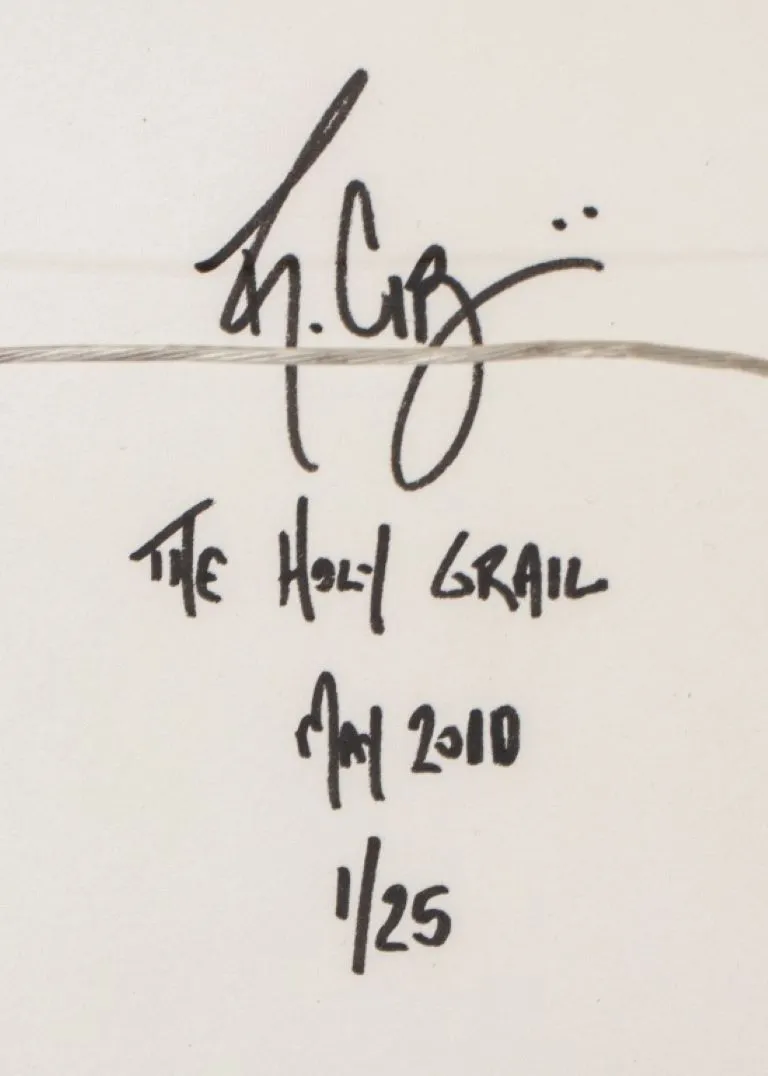 THE HOLY GRAIL
MAY 2010
1/25